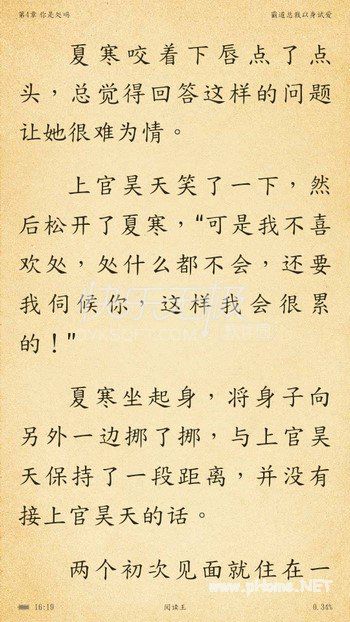 第4章 你是处吗 霸道总裁以身试爱
夏寒咬着下唇点了点
头，总觉得回答这样的问题
让她很难为情。
上官昊天笑了一下，然
后松开了夏寒，“可是我不喜
欢处，处什么都不会，还要
我伺候你，这样我会很累
的！”
夏寒坐起身，将身子向
另外一边挪了挪，与上官昊
天保持了一段距离，并没有
接上官昊天的话。
两个初次见面就住在一
www.pHome.NET
16:19 阅读王 0.34%